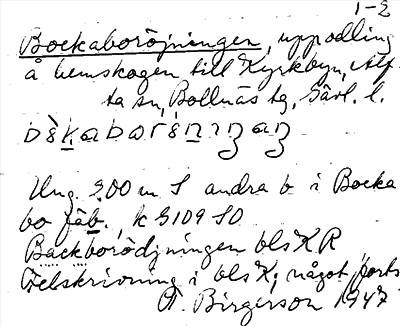 1-2
Bockaboröjningen, uppodling
å hemskogen till Kyrkbyn, Alf-
ta sn, Bollnäs tg, Gävl. l.
Ung. 200 m S andra b i Bocka
bo fäb., k G109 SO
Backborödjningen bls KR
Felskrivning i bls K; något forts
A. Birgerson 1947